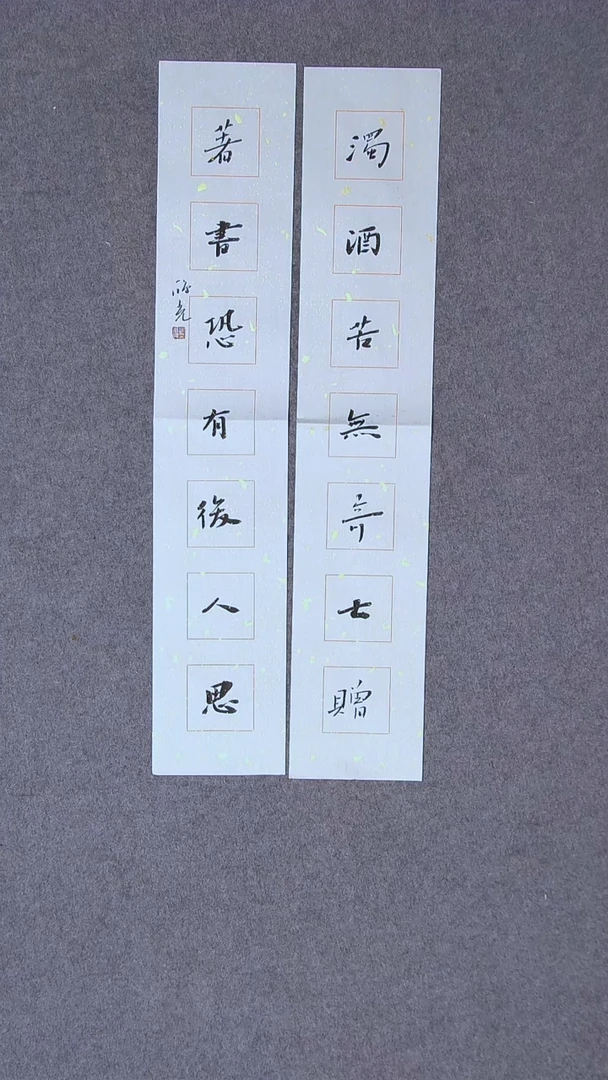 濁酒苦無奇士贈
著書恐有後人思